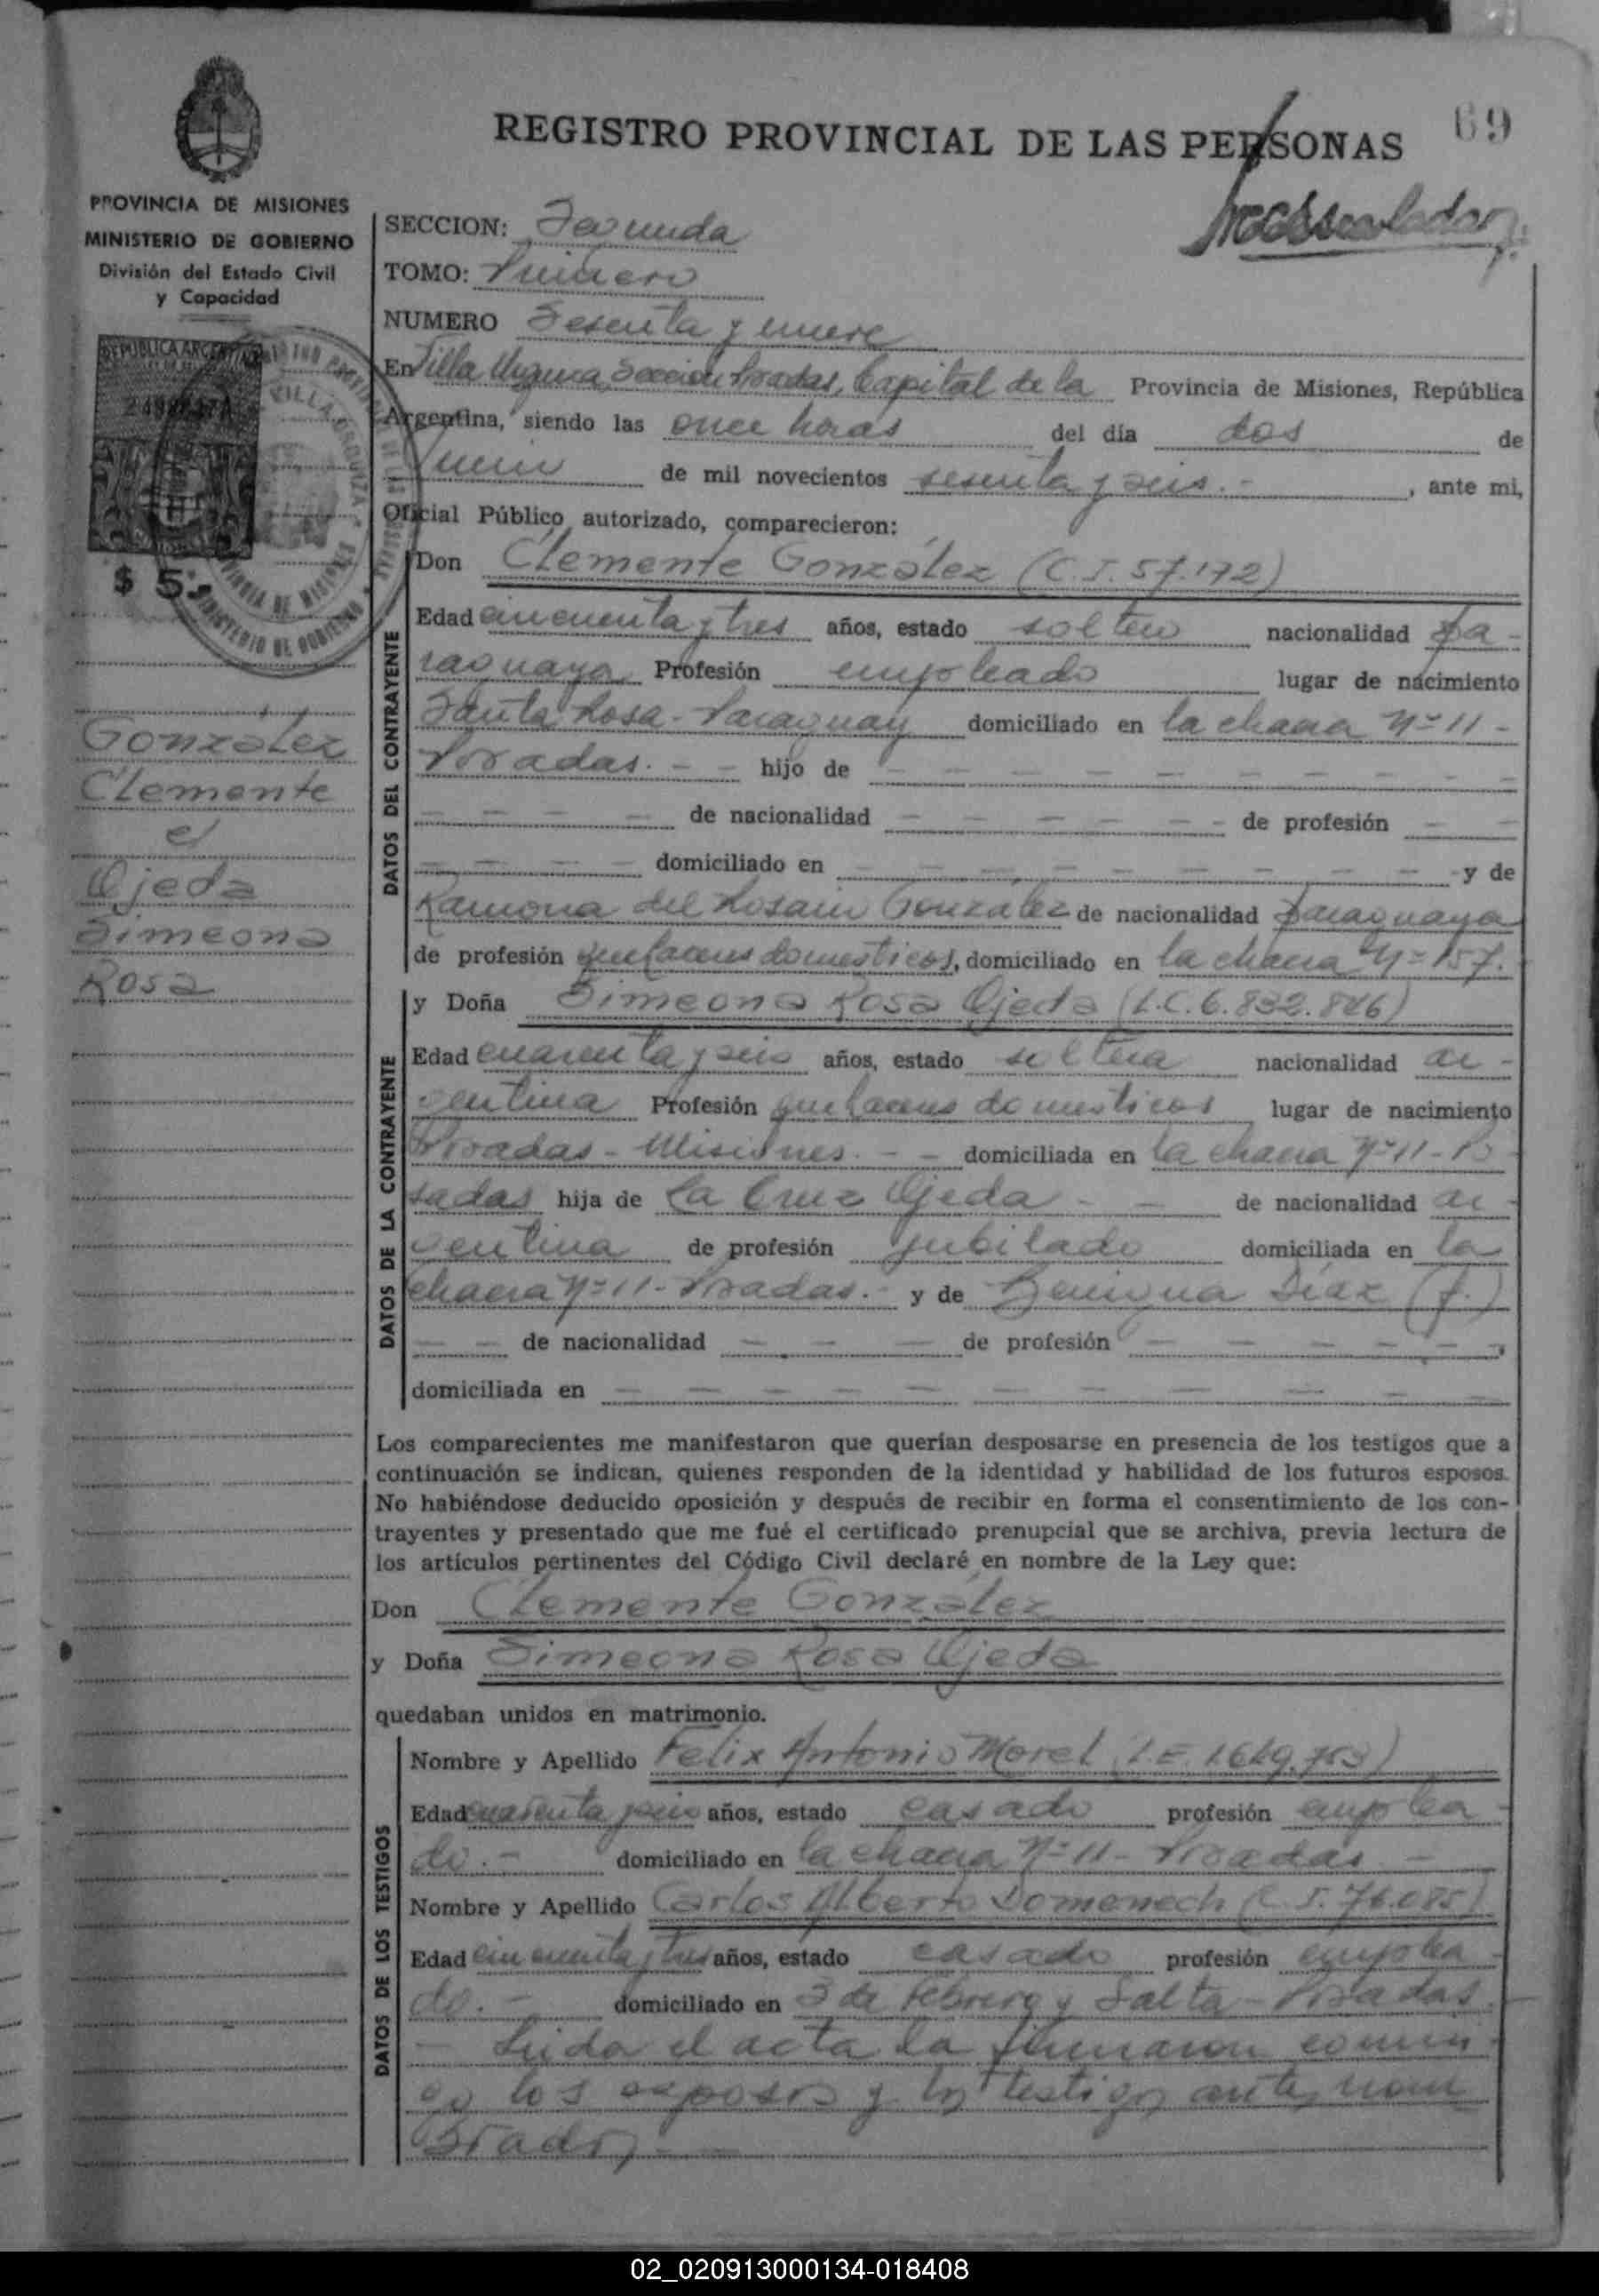 REGISTRO PROVINCIAL DE LAS PERSONAS
69
PROVINCIA DE MISIONES
MINISTERIO DE GOBIERNO
División del Estado Civil
y Capacidad
REPUBLICA ARGENTINA
$ 5.-
González
Clemente
c/
Ojeda
Simeona
Rosa
SECCION: Segunda
TOMO: Primero
NUMERO Sesenta y nueve
En Villa Urquiza, Sección Posadas, Capital de la Provincia de Misiones, República
Argentina, siendo las once horas del día dos de
Junio de mil novecientos sesenta y seis.- , ante mi,
Oficial Público autorizado, comparecieron:
DATOS DEL CONTRAYENTE
Don Clemente González (C.I. 57.172)
Edad cincuenta y tres años, estado soltero nacionalidad pa-
raguaya Profesión empleado lugar de nacimiento
Santa Rosa - Paraguay domiciliado en la chacra Nº 11 -
Posadas. - - hijo de - - - - - - - - -
- - - - de nacionalidad - - - - - - de profesión - -
- - - - domiciliado en - - - - - - - - y de
Ramona del Rosario González de nacionalidad paraguaya
de profesión quehaceres domesticos, domiciliado en la chacra Nº 157.
DATOS DE LA CONTRAYENTE
y Doña Simeona Rosa Ojeda (L.C. 6.832.846)
Edad cuarenta y seis años, estado soltera nacionalidad ar-
gentina Profesión quehaceres domesticos lugar de nacimiento
Posadas - Misiones. - - domiciliada en la chacra Nº 11 - Po-
sadas hija de La Cruz Ojeda - - de nacionalidad ar-
gentina de profesión jubilado domiciliada en la
chacra Nº 11 - Posadas. - y de Benigna Díaz (f.)
- - de nacionalidad - - - de profesión - - - - - -,
domiciliada en - - - - - - - - - - - -
Los comparecientes me manifestaron que querían desposarse en presencia de los testigos que a
continuación se indican, quienes responden de la identidad y habilidad de los futuros esposos.
No habiéndose deducido oposición y después de recibir en forma el consentimiento de los con-
trayentes y presentado que me fué el certificado prenupcial que se archiva, previa lectura de
los artículos pertinentes del Código Civil declaré en nombre de la Ley que:
Don Clemente González
y Doña Simeona Rosa Ojeda
quedaban unidos en matrimonio.
DATOS DE LOS TESTIGOS
Nombre y Apellido Felix Antonio Morel (L.E. 1.649.753)
Edad cuarenta y seis años, estado casado profesión emplea-
do.- domiciliado en la chacra Nº 11 - Posadas -
Nombre y Apellido Carlos Alberto Domenech (C.I. 76.085)
Edad cincuenta y tres años, estado casado profesión emplea-
do.- domiciliado en 3 de Febrero y Salta - Posadas.
- Leida el acta la firmaron conmi-
go los esposos y los testigos antes nom
brados. -
02_020913000134-018408